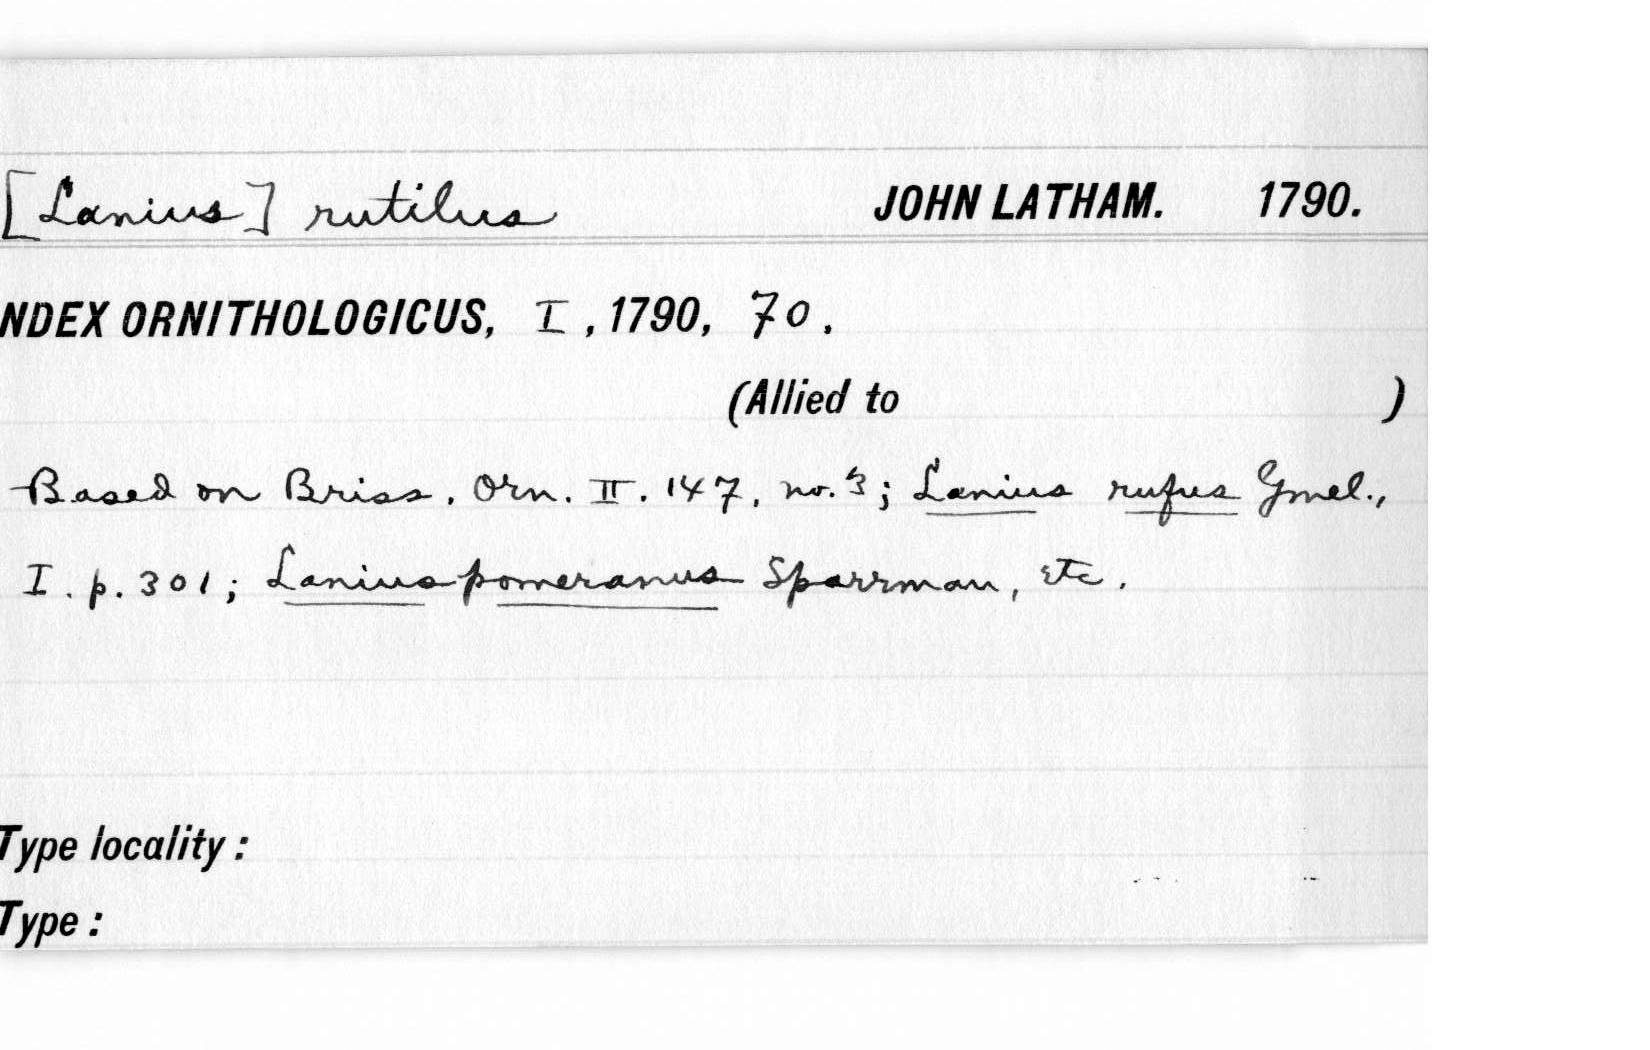 [Lanius] rutilus JOHN LATHAM. 1790.
NDEX ORNITHOLOGICUS, I, 1790, 70.
(Allied to )
Based on Briss. Orn. II. 147, no. 3; Lanius rufus Gmel.,
I. p. 301; Lanius pomeranus Sparrman, etc.
Type locality :
Type :